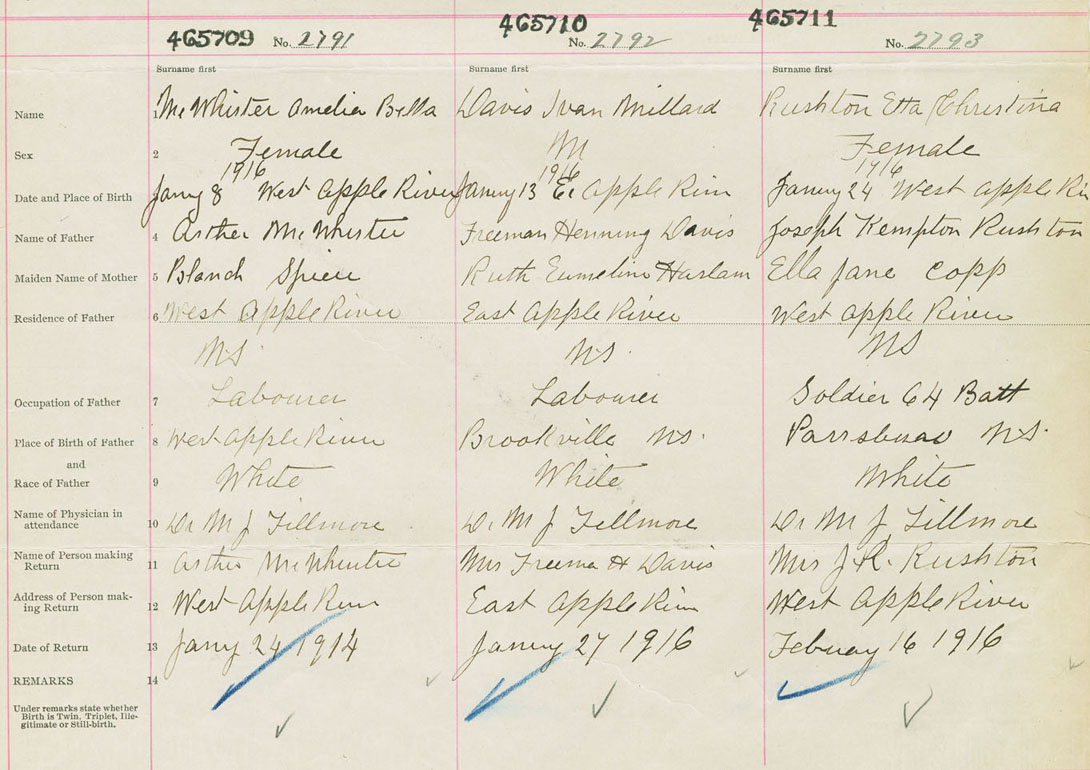 465709 No. 2791
465710 No. 2792
465711 No. 2793
Surname first Surname first Surname first
Name 1 McWhirter Amelia Bella Davis Ivan Millard Rushton Etta Christina
Sex 2 Female M Female
1916 1916 1916
Date and Place of Birth Jany 8 West Apple River January 13 E. Apple River January 24 West Apple Ri
Name of Father 4 Arther McWhirter Freeman Henning Davis Joseph Kempton Rushton
Maiden Name of Mother 5 Blanch Ruth Emmeline Haslam Ella Jane Copp
Residence of Father 6 West Apple River East Apple River West Apple River
NS NS NS
Occupation of Father 7 Labourer Labourer Soldier 64 Batt
Place of Birth of Father 8 West Apple River Brookville NS. Parrsboro NS.
and
Race of Father 9 White White White
Name of Physician in
attendance 10 Dr M J Fillmore Dr M J Fillmore Dr M J Fillmore
Name of Person making
Return 11 Arther McWhirter Mrs Freeman H Davis Mrs J. K. Rushton
Address of Person mak-
ing Return 12 West Apple River East Apple River West Apple River
Date of Return 13 Jany 24 1914 January 27 1916 February 16 1916
REMARKS 14
Under remarks state whether
Birth is Twin, Triplet, Ille-
gitimate or Still-birth.